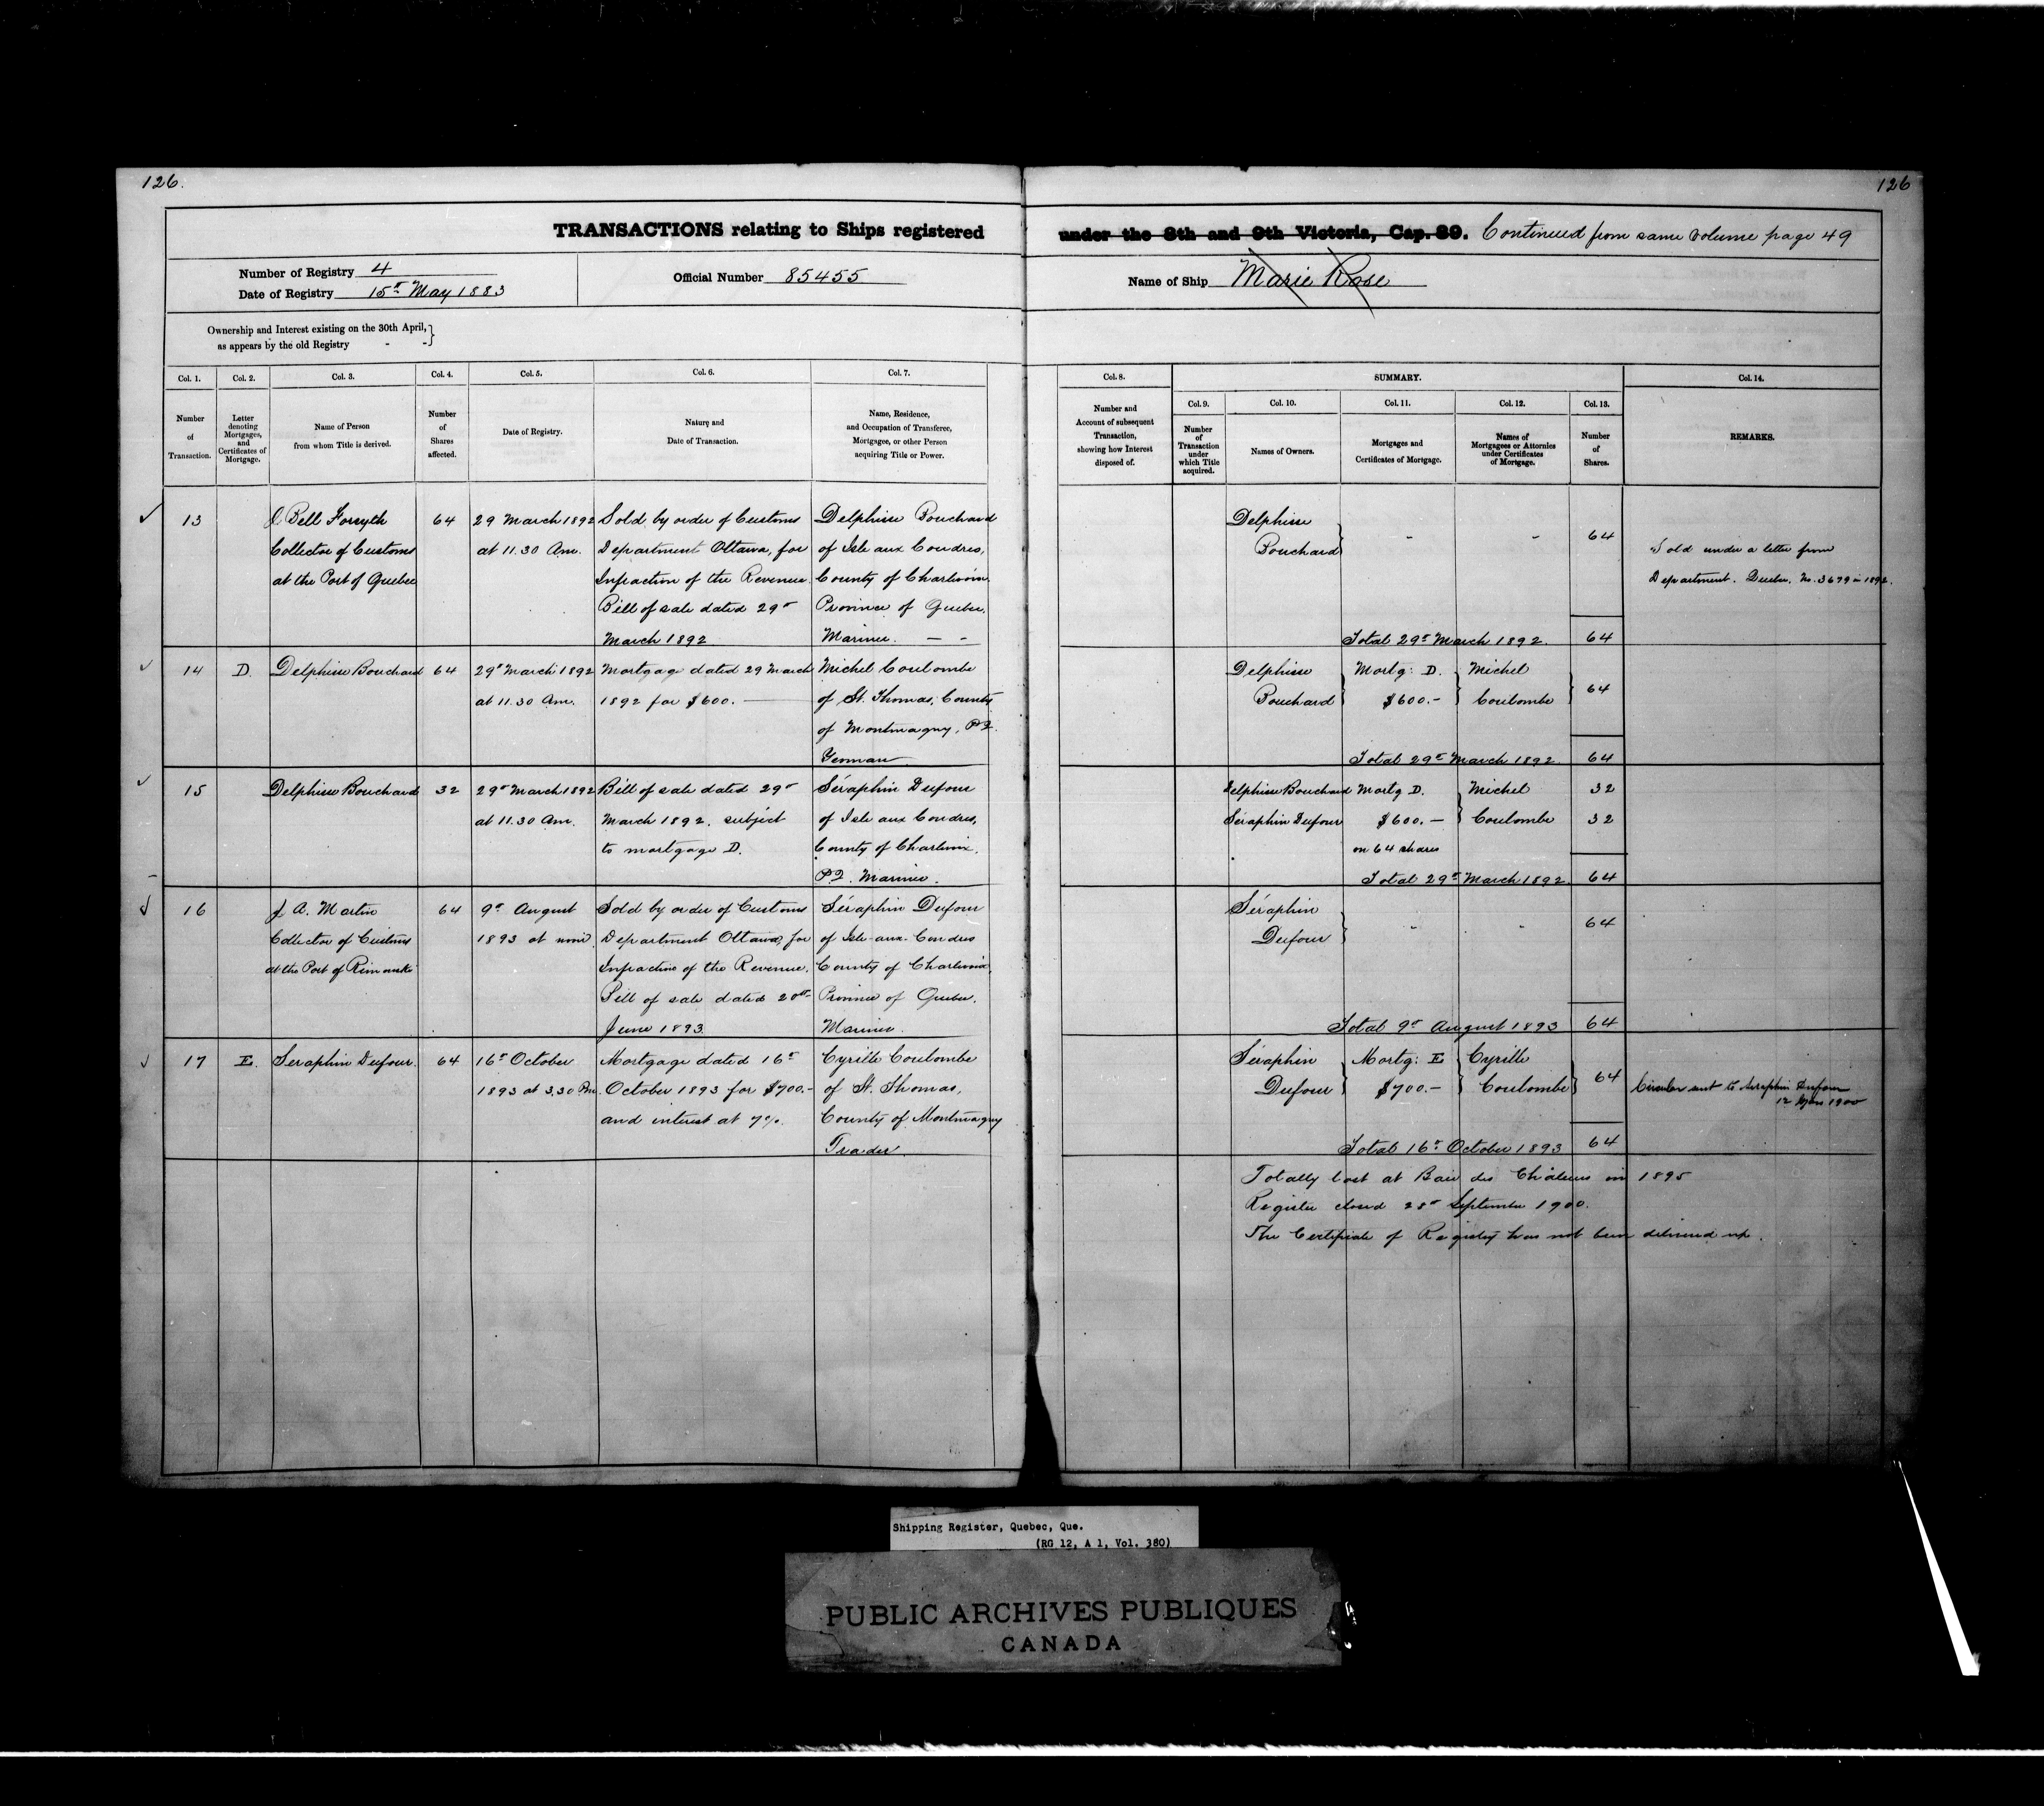 126.
126
TRANSACTIONS relating to Ships registered under the 8th and 9th Victoria, Cap. 89. Continued from same volume page 49
Number of Registry 4
Date of Registry 15th May 1883
Official Number 85455
Name of Ship Marie Rose
Ownership and Interest existing on the 30th April,
as appears by the old Registry - -
Col. 1.
Number
of
Transaction.
Col. 2.
Letter
denoting
Mortgages,
and
Certificates of
Mortgage.
Col. 3.
Name of Person
from whom Title is derived.
Col. 4.
Number
of
Shares
affected.
Col. 5.
Date of Registry.
Col. 6.
Nature and
Date of Transaction.
Col. 7.
Name, Residence,
and Occupation of Transferee,
Mortgagee, or other Person
acquiring Title or Power.
Col. 8.
Number and
Account of subsequent
Transaction,
showing how Interest
disposed of.
SUMMARY.
Col. 9.
Number
of
Transaction
under
which Title
acquired.
Col. 10.
Names of Owners.
Col. 11.
Mortgages and
Certificates of Mortgage.
Col. 12.
Names of
Mortgagees or Attornies
under Certificates
of Mortgage.
Col. 13.
Number
of
Shares.
Col. 14.
REMARKS.
13
J Bell Forsyth
Collector of Customs
at the Port of Quebec
64
29 March 1892
at 11.30 Am.
Sold by order of Customs
Department Ottawa, for
Infraction of the Revenue.
Bill of sale dated 29th
March 1892
Delphisse Bouchard
of Isle aux Coudres,
County of Charlevoix.
Province of Quebec.
Mariner. — -
Delphisse
Bouchard
-
-
64
Sold under a letter from
Department. Quebec. No. 3679 in 1892.
Total 29th March 1892.
64
14
D.
Delphisse Bouchard
64
29th March 1892
at 11.30 Am.
Mortgage dated 29 March
1892 for $600. —
Michel Coulombe
of St. Thomas, County
of Montmagny, P.Q.
Yeoman
Delphisse
Bouchard
Mortg: D.
$600.-
Michel
Coulombe
64
Total 29th March 1892.
64
15
Delphisse Bouchard
32
29th March 1892
at 11.30 Am.
Bill of sale dated 29th
March 1892. subject
to mortgage D.
Séraphin Dufour
of Isle aux Coudres,
County of Charlevoix.
P.Q. Mariner.
Delphisse Bouchard
Séraphin Dufour
Mortg D.
$600.—
on 64 shares
Michel
Coulombe
32
32
Total 29th March 1892.
64
16
J A. Martin
Collector of Customs
at the Port of Rimouski
64
9th August
1893 at noon
Sold by order of Customs
Department Ottawa, for
Infraction of the Revenue.
Bill of sale dated 20th
June 1893
Séraphin Dufour
of Isle-aux-Coudres
County of Charlevoix
Province of Quebec.
Mariner.
Séraphin
Dufour
-
-
64
Total 9th August 1893
64
17
E.
Seraphin Dufour.
64
16th October
1893 at 3.30 Pm.
Mortgage dated 16th
October 1893 for $700.-
and interest at 7%.
Cyrille Coulombe
of St. Thomas,
County of Montmagny
Trader.
Séraphin
Dufour
Mortg: E
$700.-
Cyrille
Coulombe
64
Circular sent to Seraphin Dufour
1900
Total 16th October 1893
64
Totally lost at Baie des Chaleurs in 1895
Register closed 28th September 1900.
The Certificate of Registry has not been delivered up.
Shipping Register, Quebec, Que.
(RG 12, A 1, Vol. 380)
PUBLIC ARCHIVES PUBLIQUES
CANADA